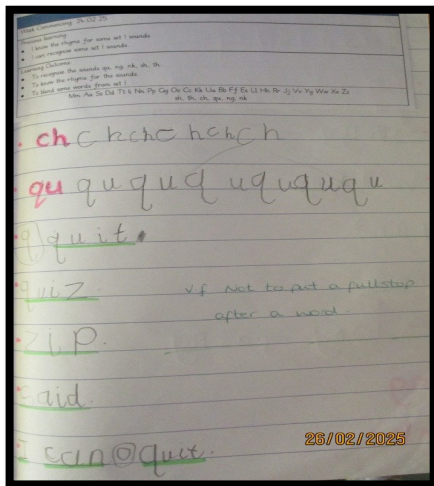 Week Commencing: 24.02.25
Previous learning:
• I know the rhyme for some set 1 sounds.
• I can recognise some set 1 sounds.
Learning Outcome:
• To recognise the sounds qu, ng, nk, ch, th.
• To know the rhyme for the sounds.
• To blend some words from set 1
Mm Aa Ss Dd Tt Ii Nn Pp Gg Oo Cc Kk Uu Bb Ff Ee Ll Hh Rr Jj Vv Yy Ww Xx Zz
sh, th, ch, qu, ng, nk
ch c h ch c h ch c h
qu qu qu q u qu qu qu
q quit.
quiz. vf Not to put a fullstop
after a word
zip.
said.
I can quit.
26/02/2025